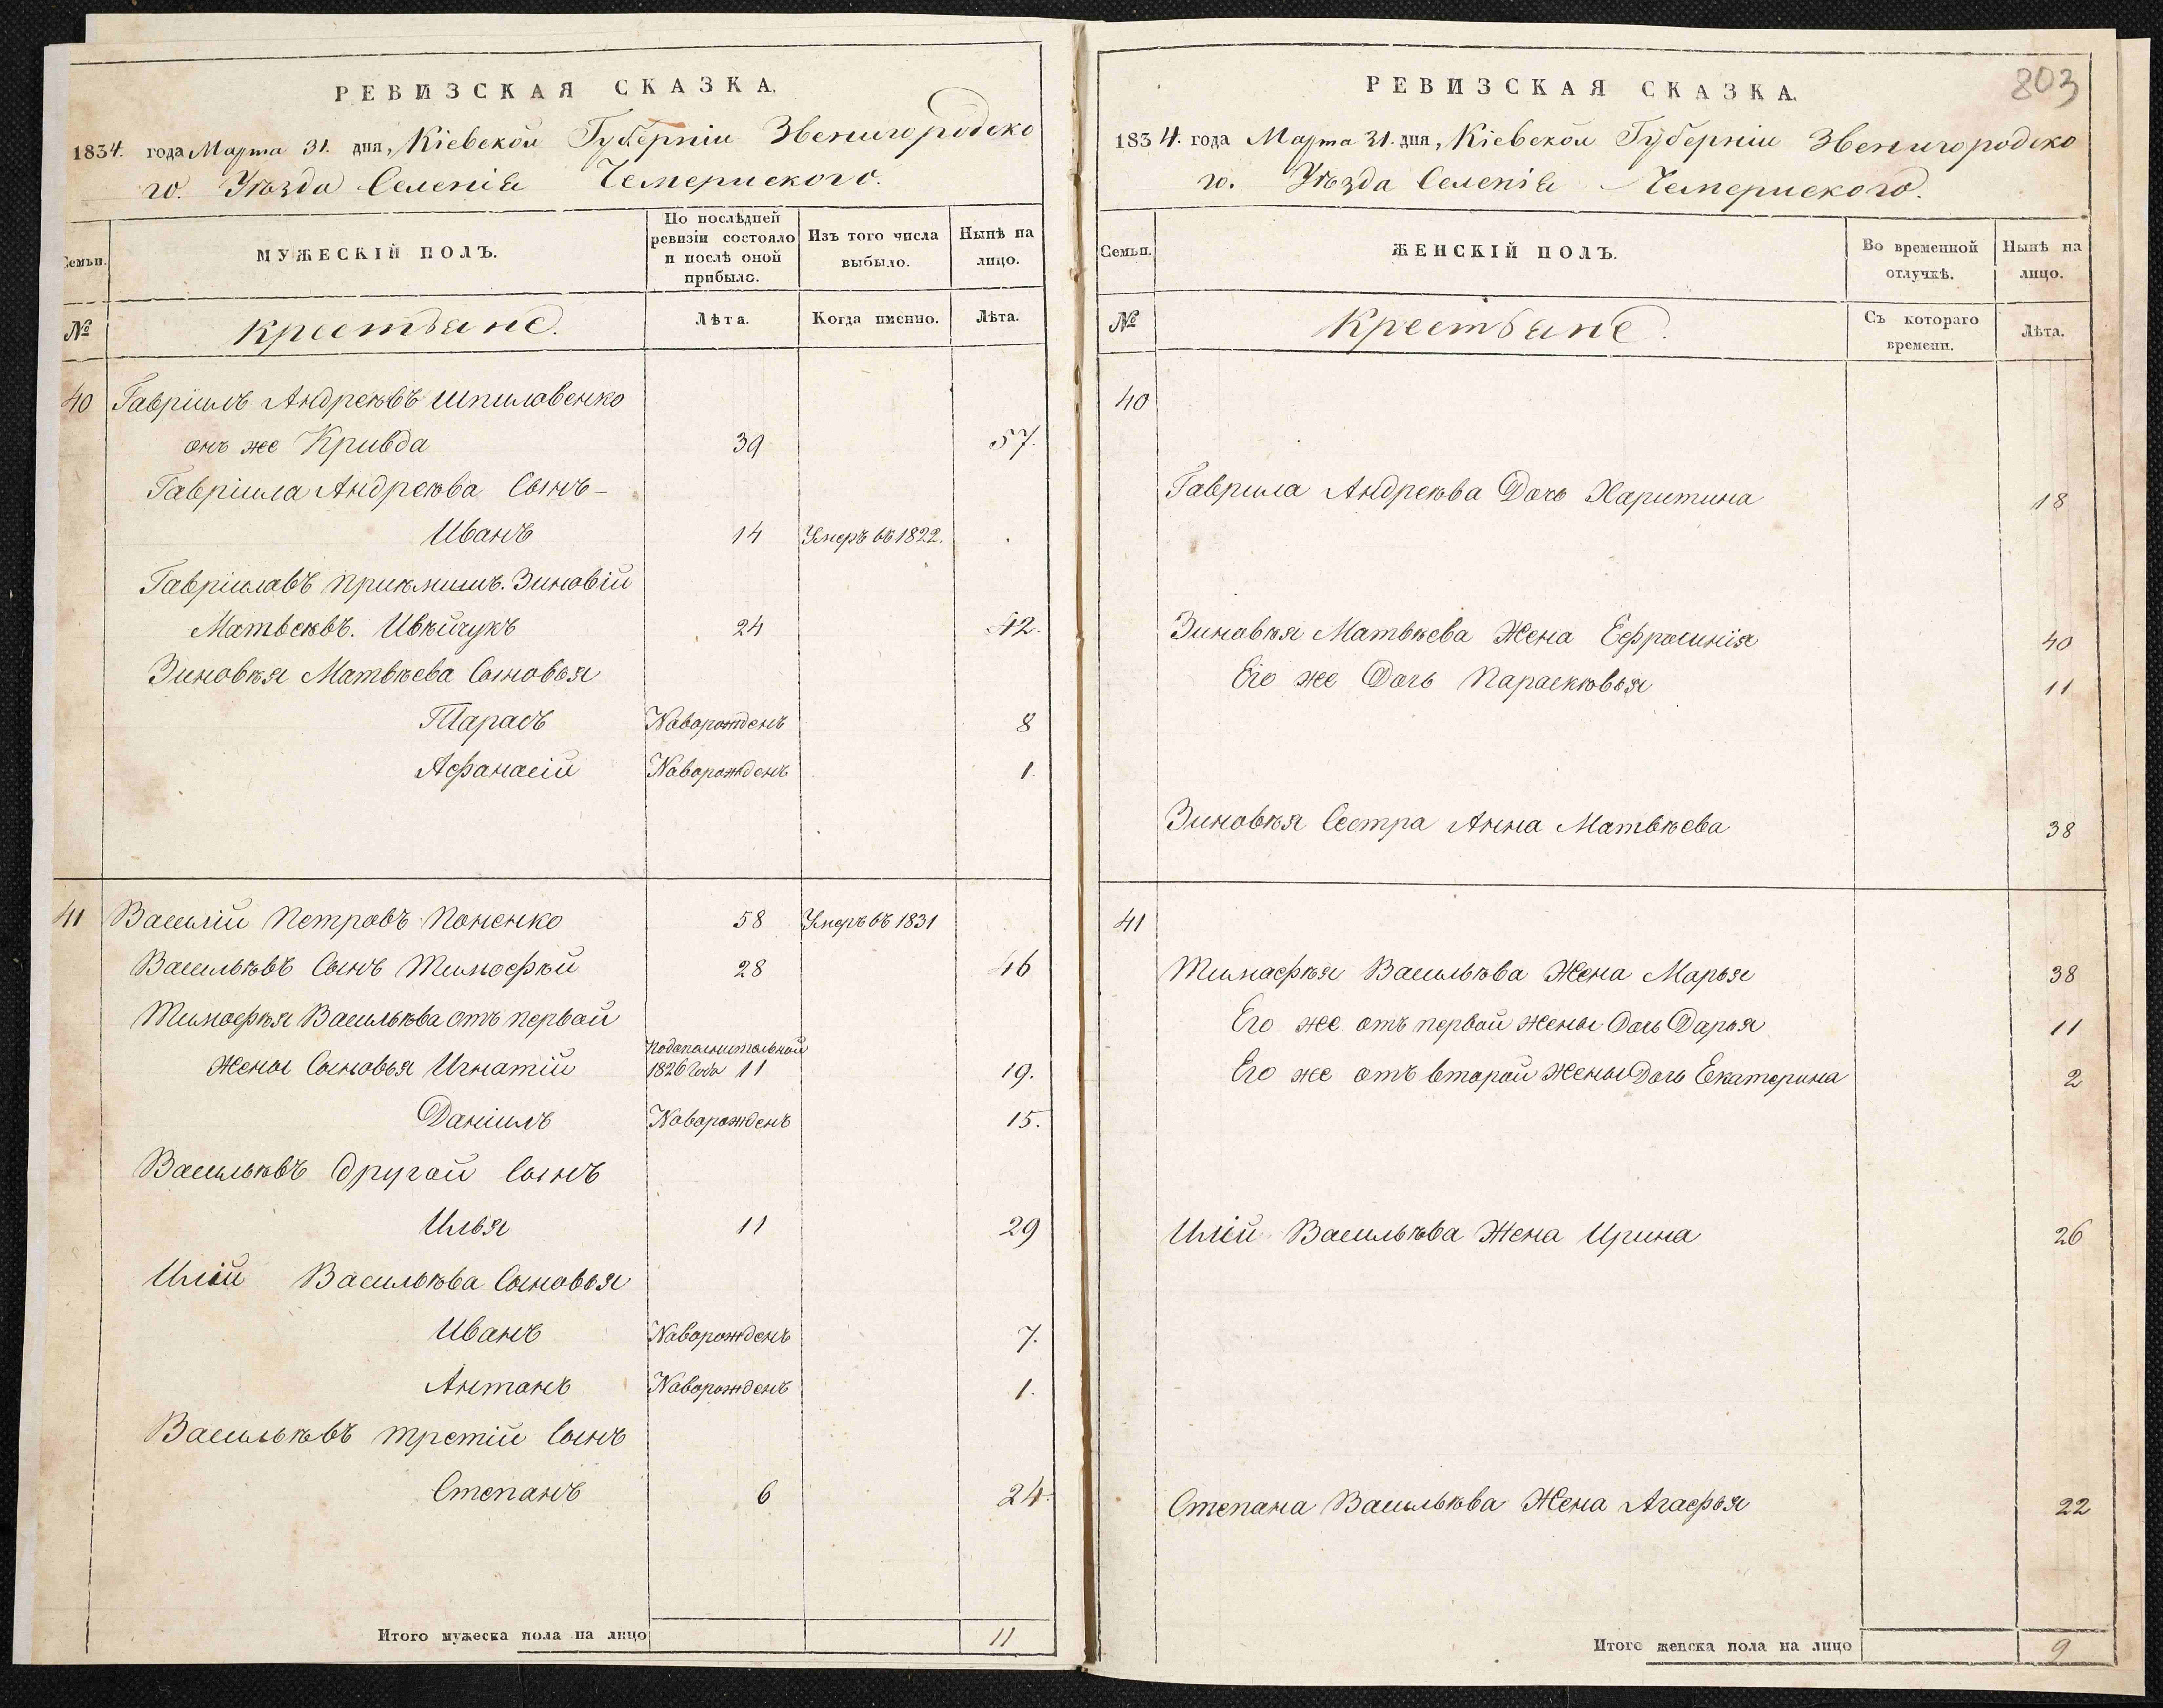 РЕВИЗСКАЯ СКАЗКА.
1834. года Марта 31. дня, Кіевской Губерніи Звенигородско
го. Уѣзда Селенія Чемериского.
Семьи.
МУЖЕСКІЙ ПОЛЪ.
По послѣдней ревизіи состояло и послѣ оной прибыло.
Изъ того числа выбыло.
Нынѣ на лицо.
№
Крестьяне.
Лѣта.
Когда именно.
Лѣта.
40 Гавріилъ Андреѣвъ Шпиловенко
онъ же Кривда 39 57.
Гавріила Андреѣва Сынъ-
Иванъ 14 Умеръ въ 1822.
Гавріиловъ Приѣмышъ. Зиновій
Матвеѣвъ. Ивѣйчукъ 24 42.
Зиновѣя Матвѣева Сыновья
Тарасъ Новорожденъ 8
Афанасій Новорожденъ 1.
41 Василій Петровъ Поненко 58 Умеръ въ 1831
Васильѣвъ Сынъ Тимофѣй 28 46
Тимофѣя Васильѣва отъ первой
Жены Сыновья Игнатій подополнительной 1826 Года 11 19.
Даніилъ Новорожденъ 15.
Васильѣвъ другой Сынъ
Илья 11 29
Иліи Васильѣва Сыновья
Иванъ Новорожденъ 7.
Антонъ Новорожденъ 1.
Васильѣвъ третій Сынъ
Степанъ 6 24.
Итого мужеска пола на лицо 11
803
РЕВИЗСКАЯ СКАЗКА.
1834. года Марта 31. дня, Кіевской Губерніи Звенигородско
го. Уѣзда Селенія Чемериского.
Семьи.
ЖЕНСКІЙ ПОЛЪ.
Во временной отлучкѣ.
Нынѣ на лицо.
№
Крестьяне.
Съ котораго времени.
Лѣта.
40
Гаврила Андреѣва Дочь Харитина 18
Зиновѣя Матвѣева Жена Ефросинія 40
Его же Дочь Параскѣвья 11
Зиновѣя Сестра Анна Матвѣева 38
41
Тимофѣя Васильѣва Жена Марья 38
Его же отъ первой жены Дочь Дарья 11
Его же отъ второй жены Дочь Екатерина 2
Иліи Васильѣва Жена Ирина 26
Степана Васильѣва Жена Агафья 22
Итого женска пола на лицо 9